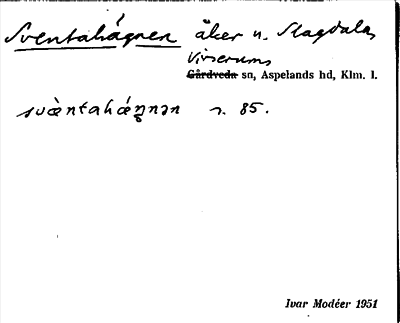 Sventahágnen åker u. Slagdala,
Virserums
Gårdveda sn, Aspelands hd, Klm. l.
svæ̀ntahágnən s. 85.
Ivar Modéer 1951